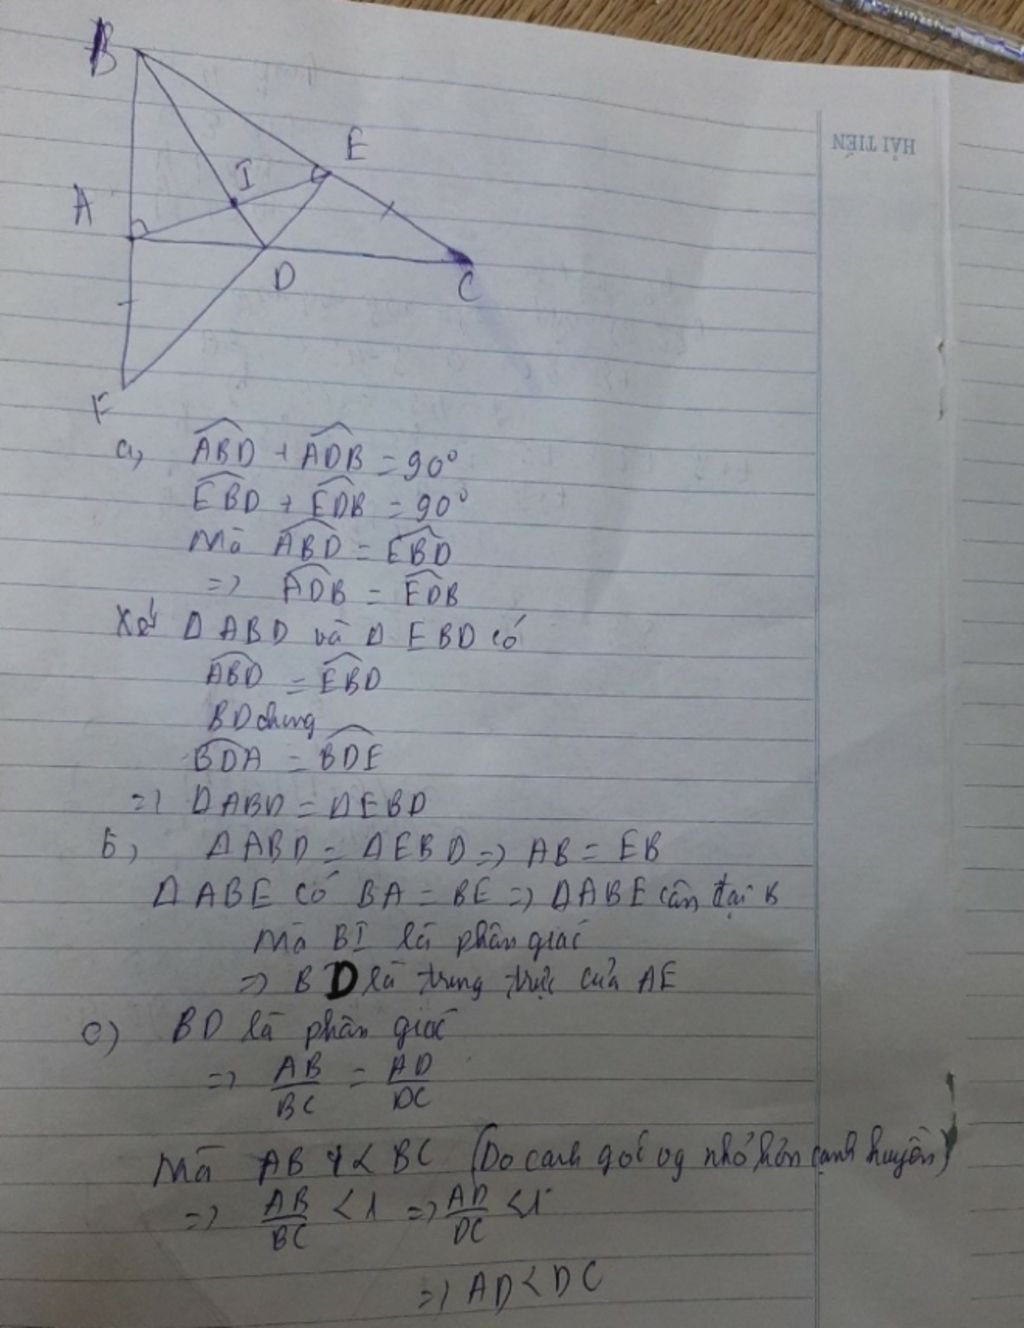 B
E
I
A
D
C
F
HẢI TIẾN
a, ABD + ADB = 90°
EBD + EDB = 90°
Mà ABD = EBD
=> ADB = EDB
Xét Δ ABD và Δ EBD có
ABD = EBD
BD chung
BDA = BDE
=> ΔABD = ΔEBD
b, ΔABD = ΔEBD => AB = EB
ΔABE có BA = BE => ΔABE cân tại B
Mà BI là phân giác
=> BD là trung trực của AE
c) BD là phân giác
=> AB/BC = AD/DC
Mà AB < BC (Do cạnh góc vg nhỏ hơn cạnh huyền)
=> AB/BC < 1 => AD/DC < 1
=> AD < DC